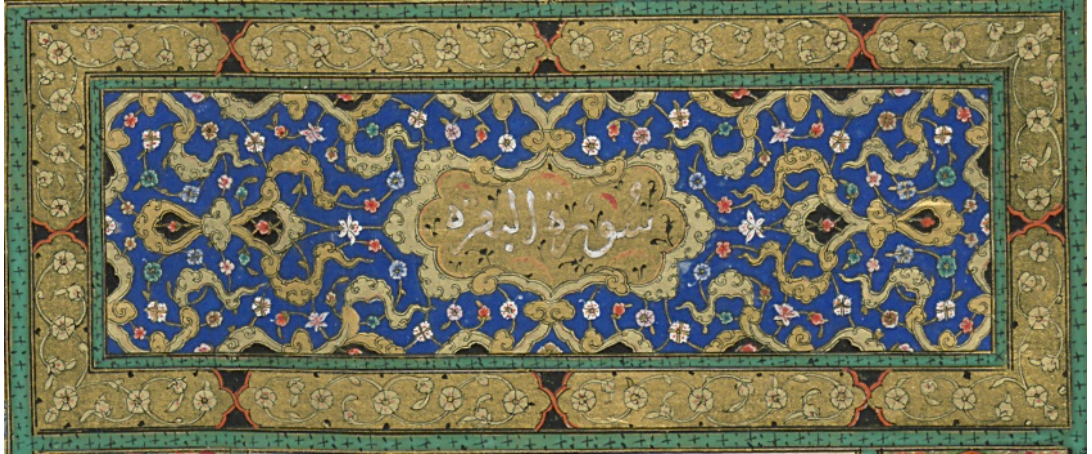 سُورَة البقرة